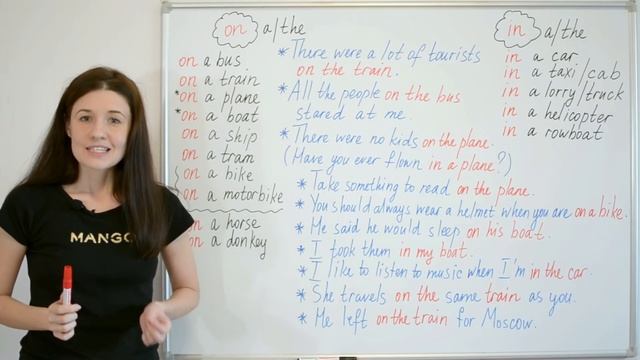 on a/the
on a bus
on a train
*on a plane
*on a boat
on a ship
on a tram
on a bike
on a motorbike
on a horse
on a donkey
* There were a lot of tourists
on the train.
* All the people on the bus
stared at me.
* There were no kids on the plane.
(Have you ever flown in a plane?)
* Take something to read on the plane.
* You should always wear a helmet when you are on a bike.
* He said he would sleep on his boat.
* I took them in my boat.
* I like to listen to music when I'm in the car.
* She travels on the same train as you.
* He left on the train for Moscow.
in a/the
in a car
in a taxi/cab
in a lorry/truck
in a helicopter
in a rowboat
MANGO